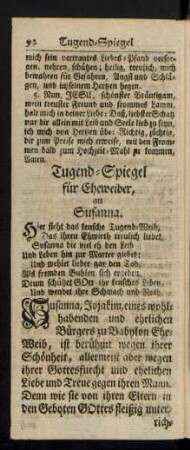 92 Tugend-Spiegel
mich sein vertrautes Liebes-Pfand versor-
gen, nehren, schützen; heilig, treulich, mich
bewahren für Gefahren, Angst und Schlä-
gen, und in seinem Hertzen hegen.
5. Nun, JESU, schönster Bräutigam,
mein treuster Freund und frommes Lamm,
halt mich in deiner Liebe: Daß, liebster Schatz
nur dir allein mit Leib und Seele lieb zu seyn,
ich mich von Hertzen übe: Richtig, züchtig,
dir zum Preise mich erweise, mit den From-
men bald zum Hochzeit-Mahl zu kommen,
Amen.
Tugend-Spiegel
für Eheweiber,
an
Susanna.
Hier steht das keusche Tugend-Weib,
Das ihren Ehwirth treulich liebet,
Susanna die viel eh den Leib
Und Leben hin zur Marter giebet:
Und wehlet lieber gar den Tod,
Als fremden Buhlen sich ergeben.
Drum schützet GOtt ihr keusches Leben,
Und wendet ihre Schmach und Noth.
Susanna, Jojakim, eines wohl-
habenden und ehrlichen
Bürgers zu Babylon Ehe-
Weib, ist berühmt wegen ihrer
Schönheit, allermeist aber wegen
ihrer Gottesfurcht und ehelichen
Liebe und Treue gegen ihren Mann.
Denn wie sie von ihren Eltern in
den Geboten GOttes fleißig unter-
rich-